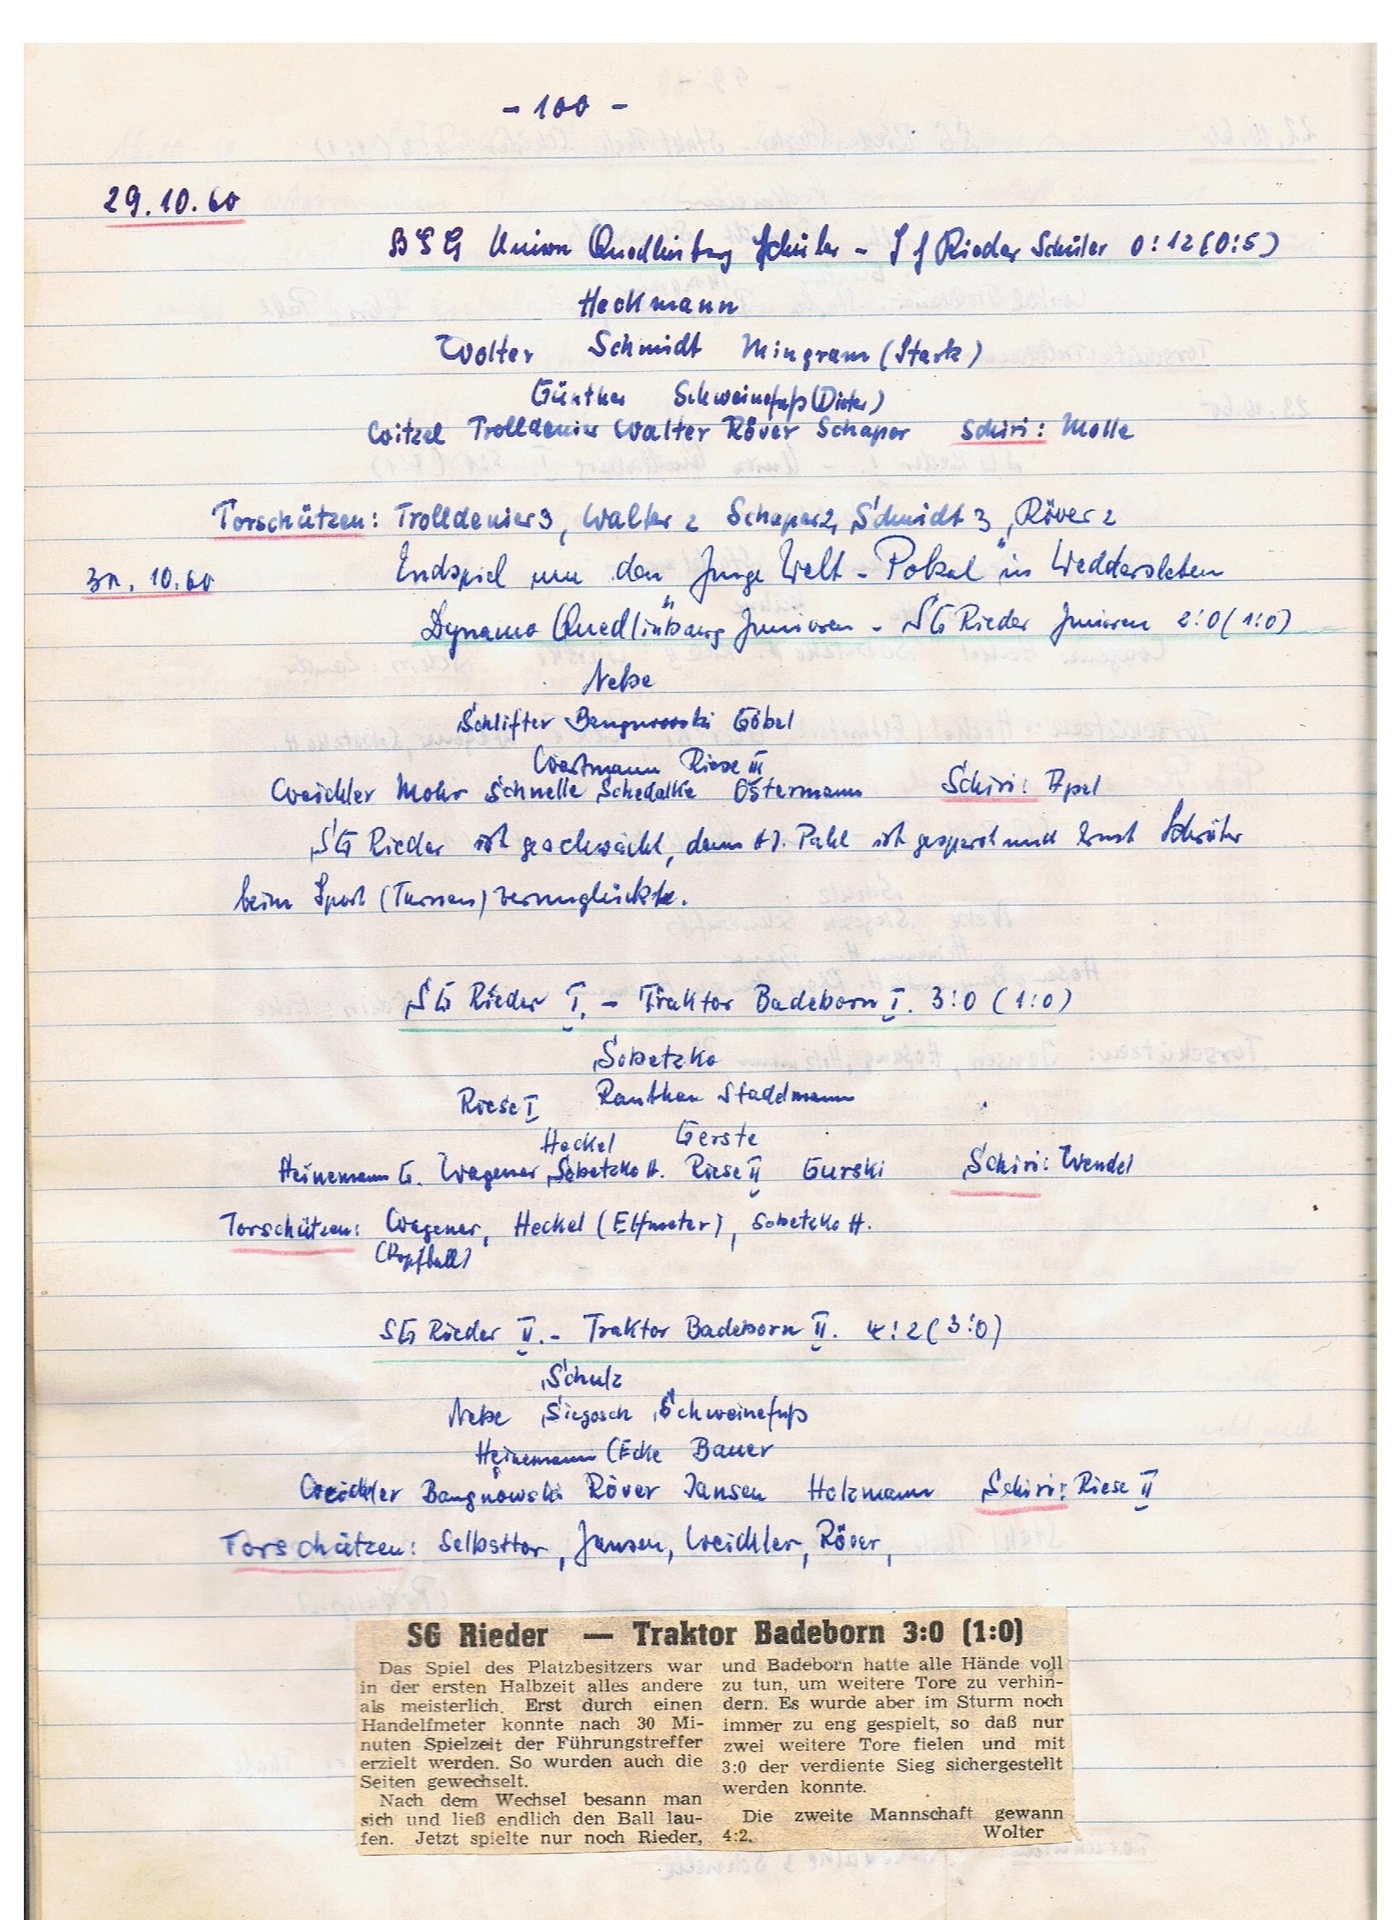 - 100 -
29.10.60
BSG Union Quedlinburg Schüler - SG Rieder Schüler 0:12 (0:5)
Heckmann
Wolter Schmidt Mingram (Stark)
Günther Schweinefuß (Dieter)
Witzel Trolldenier Walter Röver Schaper Schiri: Molle
Torschützen: Trolldenier 3, Walter 2 Schaper 2, Schmidt 3, Röver 2
30. 10.60 Endspiel um den "Junge Welt - Pokal" in Weddersleben
Dynamo Quedlinburg Junioren - SG Rieder Junioren 2:0 (1:0)
Nebe
Schlifter Bangnowski Göbel
Wortmann Riese III
Weichler Mohr Schnelle Schedalke Ostermann Schiri: Apel
SG Rieder ist geschwächt, denn H. Pahl ist gesperrt und Ernst Schröter
beim Sport (Turnen) verunglückte.
SG Rieder I. - Traktor Badeborn I. 3:0 (1:0)
Sobetzko
Riese I Ranthan Staddmann
Heckel Gerste
Heinemann G. Wagener Sobetzko H. Riese II Gurski Schiri: Wendel
Torschützen: Wagener, Heckel (Elfmeter), Sobetzko H.
(Kopfball)
SG Rieder II. - Traktor Badeborn II. 4:2 (3:0)
Schulz
Nebe Siegosch Schweinefuß
Heinemann (Ecke Bauer
Weichler Bangnowski Röver Jansen Holzmann Schiri: Riese II
Torschützen: Selbsttor, Jansen, Weichler, Röver,
SG Rieder — Traktor Badeborn 3:0 (1:0)
Das Spiel des Platzbesitzers war
in der ersten Halbzeit alles andere
als meisterlich. Erst durch einen
Handelfmeter konnte nach 30 Mi-
nuten Spielzeit der Führungstreffer
erzielt werden. So wurden auch die
Seiten gewechselt.
Nach dem Wechsel besann man
sich und ließ endlich den Ball lau-
fen. Jetzt spielte nur noch Rieder,
und Badeborn hatte alle Hände voll
zu tun, um weitere Tore zu verhin-
dern. Es wurde aber im Sturm noch
immer zu eng gespielt, so daß nur
zwei weitere Tore fielen und mit
3:0 der verdiente Sieg sichergestellt
werden konnte.
Die zweite Mannschaft gewann
4:2. Wolter